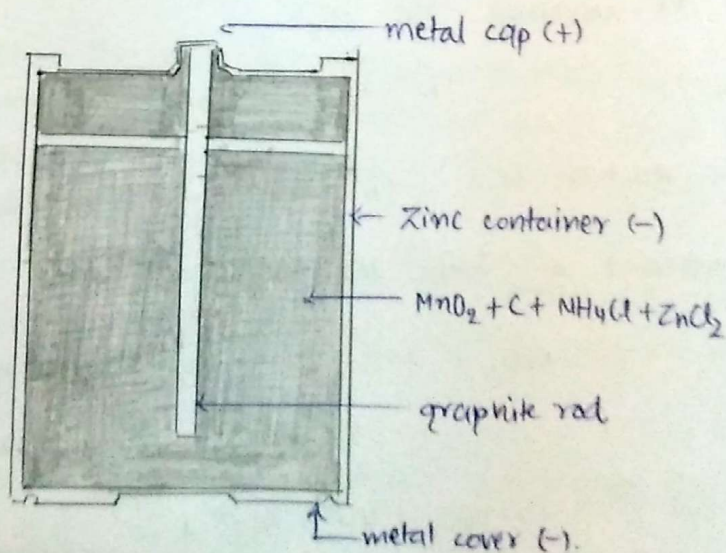 metal cap (+)
Zinc container (-)
MnO₂ + C + NH₄Cl + ZnCl₂
graphite rod
metal cover (-).